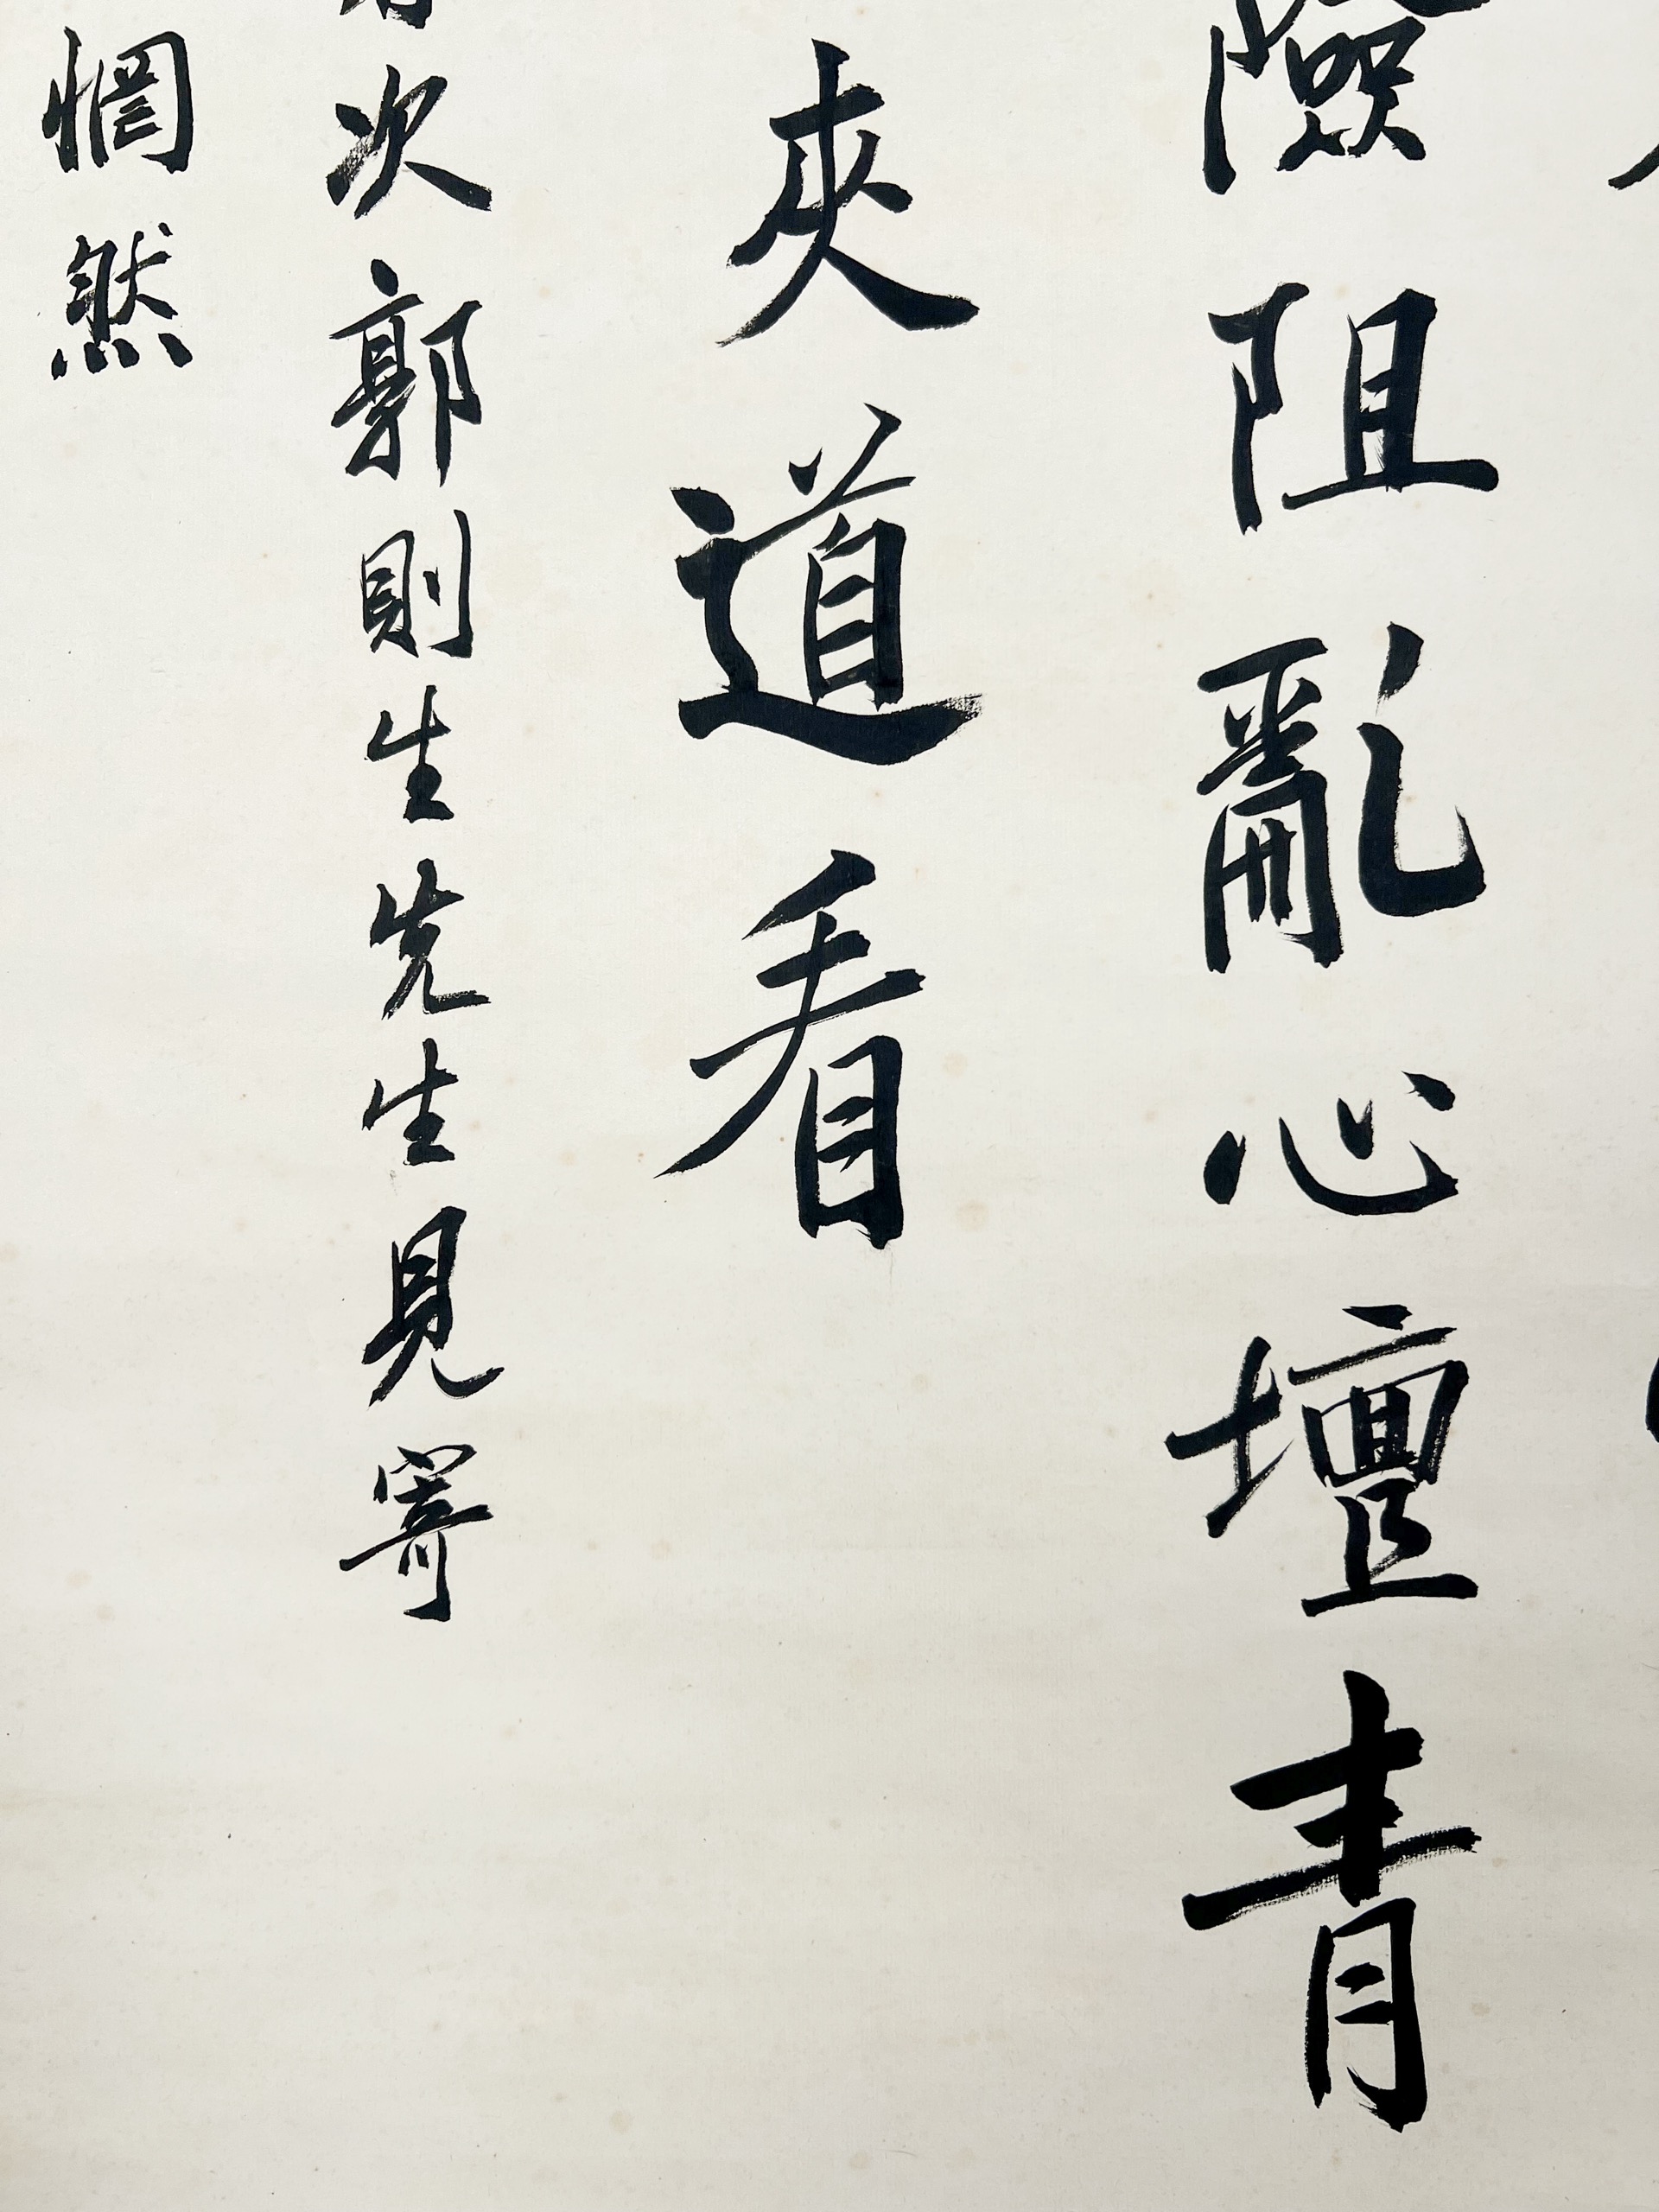 險阻亂心壇青
夾道看
次郭則生先生見寄
惘然